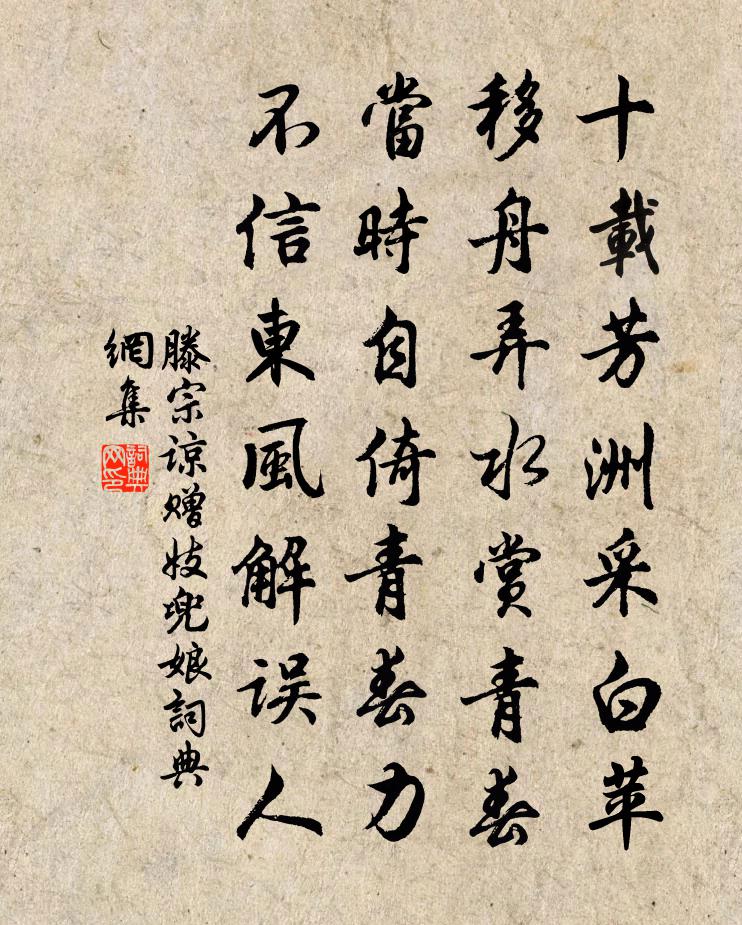 十載芳洲采白苹
移舟弄水賞青春
當時自倚青春力
不信東風解误人
滕宗谅赠妓兜娘詞典
網集
詞典
网印